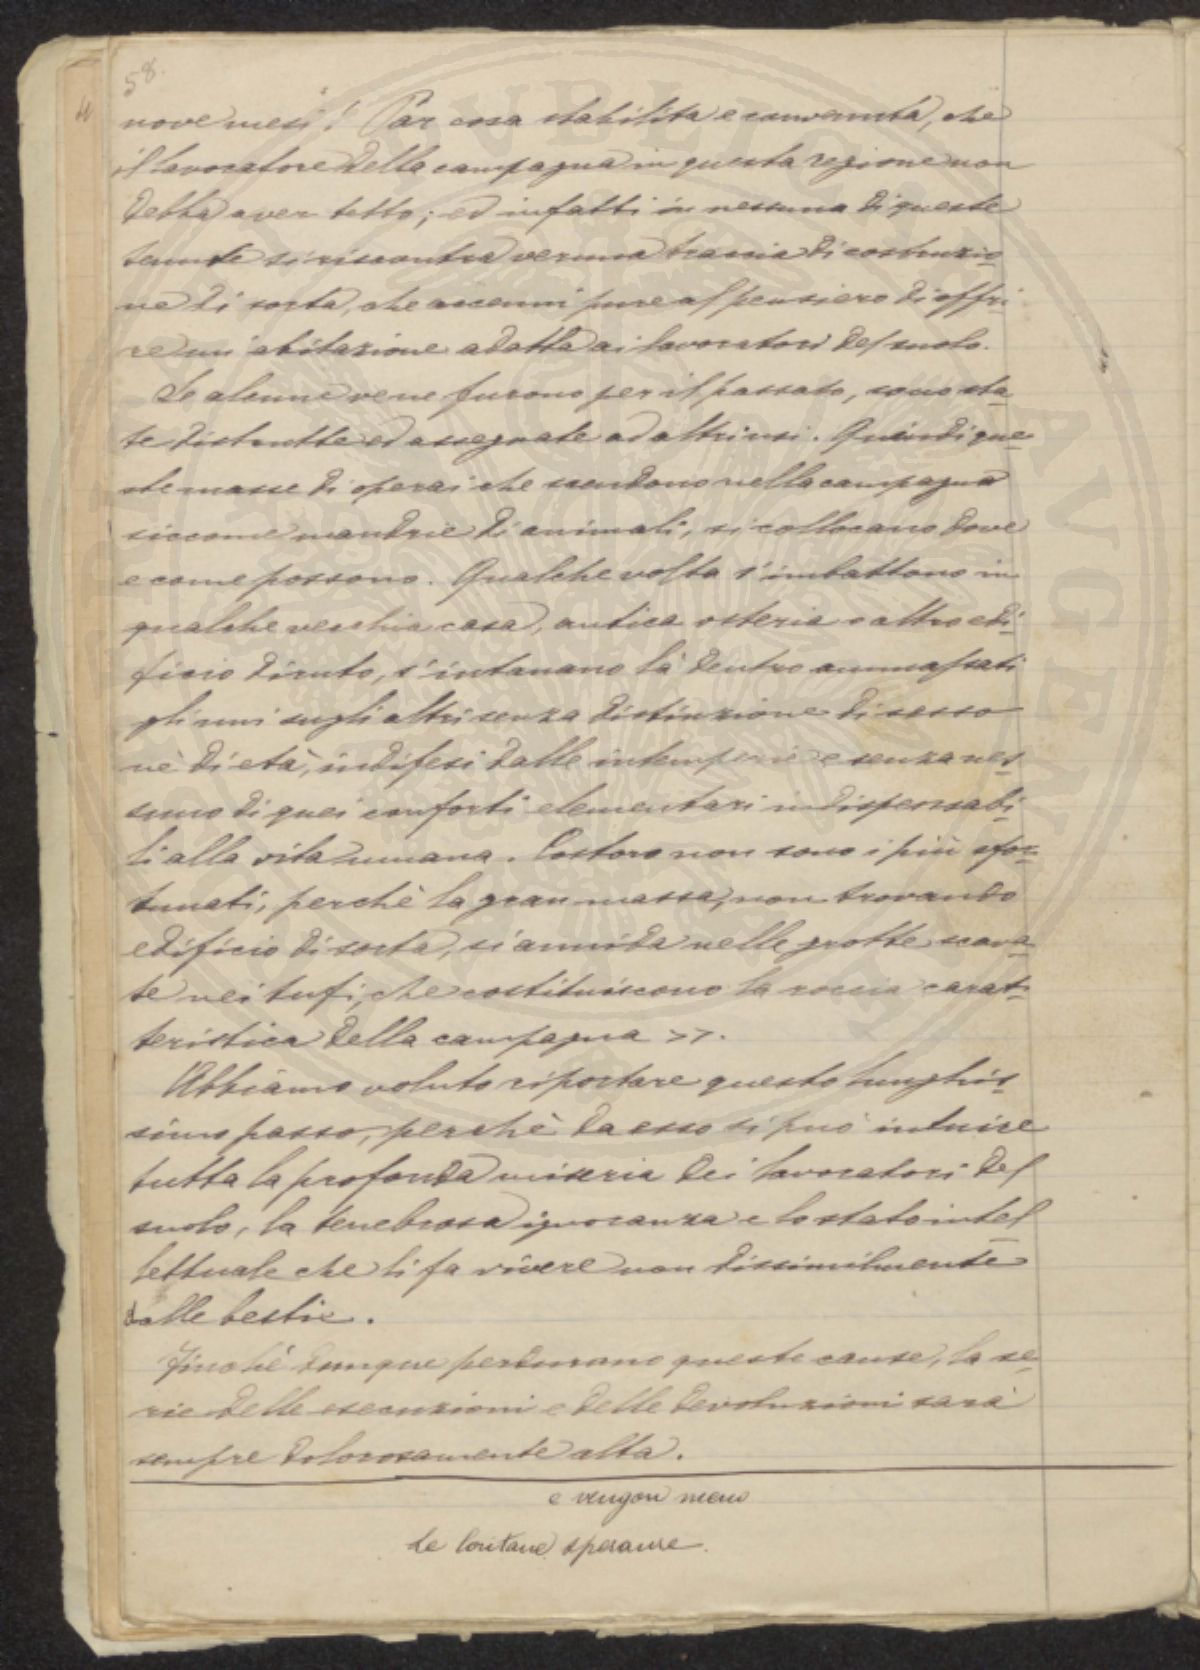 58.
nove mesi! Par cosa stabilita e convenuta, che
il lavoratore della campagna in questa regione non
debba aver tetto; ed infatti in nessuna di queste
tenute si riscontra veruna traccia di costruzio
ne di sorta, che accenni pure al pensiero di offri
re un'abitazione adatta ai lavoratori del suolo.
Se alcune ve ne furono per il passato, sono sta
te distrutte ed assegnate ad altri usi. Quindi que
ste masse di operai che scendono nella campagna
siccome mandrie di animali, si collocano dove
e come possono. Qualche volta s'imbattono in
qualche vecchia casa, antica osteria o altro edi
ficio diruto, s'intanano là dentro ammassati
gli uni sugli altri senza distinzione di sesso
nè di età, indifesi dalle intemperie e senza nes
suno di quei conforti elementari indispensabi
li alla vita umana. Costoro non sono i più sfor
tunati, perchè la gran massa, non trovando
edificio di sorta, si annida nelle grotte scava
te nei tufi, che costituiscono la roccia carat
teristica della campagna >>.
Abbiamo voluto riportare questo lunghis
simo passo, perchè da esso si può intuire
tutta la profonda miseria dei lavoratori del
suolo, la tenebrosa ignoranza e lo stato intel
lettuale che li fa vivere non dissimilmente
dalle bestie.
Finchè dunque perdurano queste cause, la se
rie delle esecuzioni e delle devoluzioni sarà
sempre dolorosamente alta.
e vengon meno
le lontane speranze.